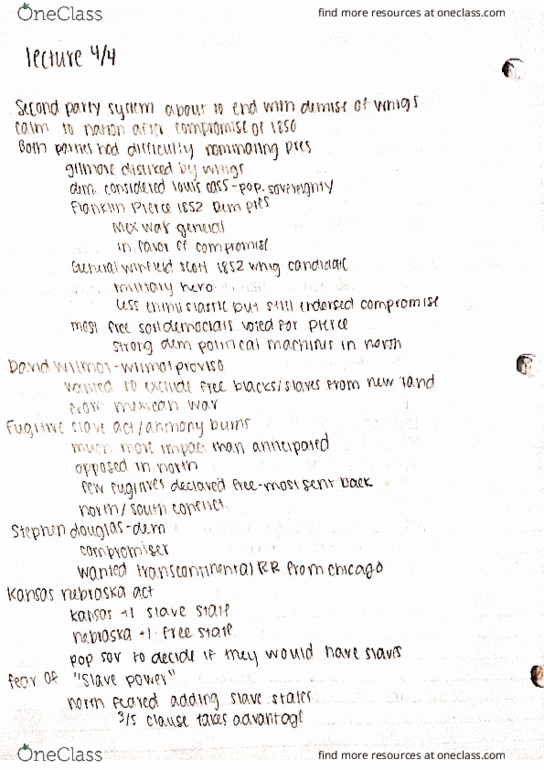 OneClass find more resources at oneclass.com
lecture 4/4
Second party system about to end with demise of whigs
calm to nation after compromise of 1850
Both parties had difficulty nominating pres
gilmore disliked by whigs
dem. considered louis cass-pop. sovereignty
Franklin Pierce 1852 Dem pres
Mex war general
in favor of compromise
General winfield scott 1852 whig candidate
military hero
less enthusiastic but still endorsed compromise
most free soil democrats voted for pierce
strong dem political machines in north
David wilmot-wilmot proviso
wanted to exclude free blacks/slaves from new land
from mexican war
Fugitive slave act/anthony burns
much more impact than anticipated
opposed in north
few fugitives declared free-most sent back
north/south conflict
Stephen douglas-dem
compromiser
wanted transcontinental RR from chicago
Kansas nebraska act
kansas +1 slave state
nebraska +1 free state
pop sov to decide if they would have slaves
fear of "slave power"
north feared adding slave states
3/5 clause takes advantage
OneClass find more resources at oneclass.com